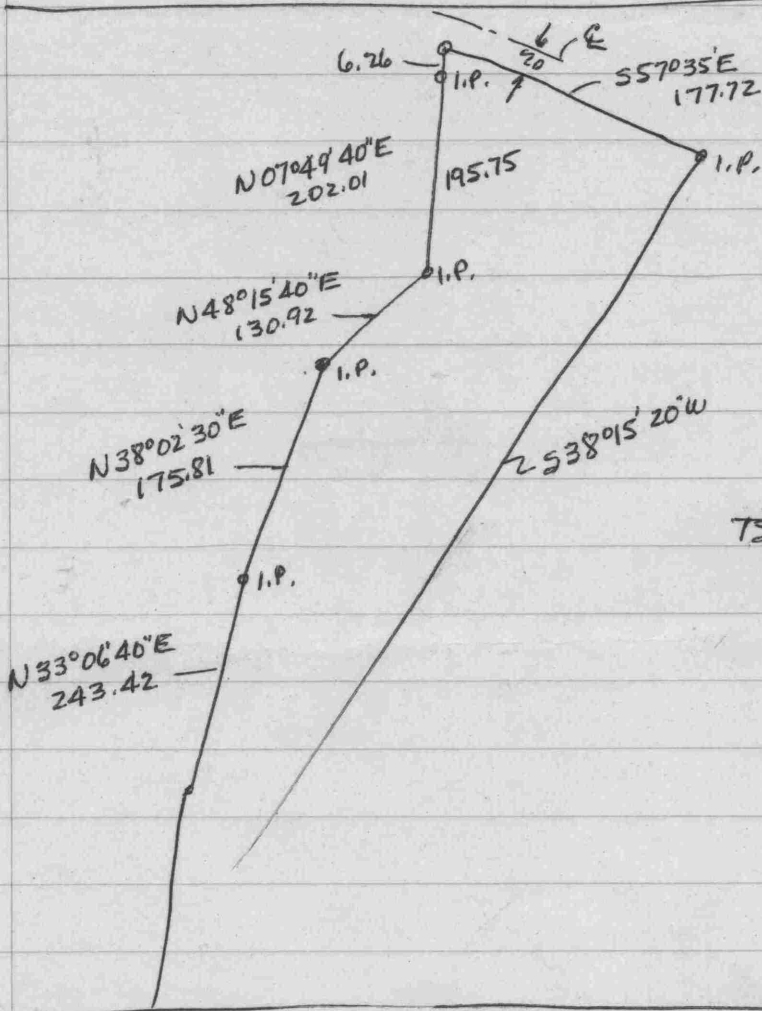 ℄
20
6.26
I.P.
S57°35'E
177.72
I.P.
N07°49'40"E
202.01
195.75
I.P.
N48°15'40"E
130.92
I.P.
N38°02'30"E
175.81
S38°15'20"W
I.P.
N33°06'40"E
243.42